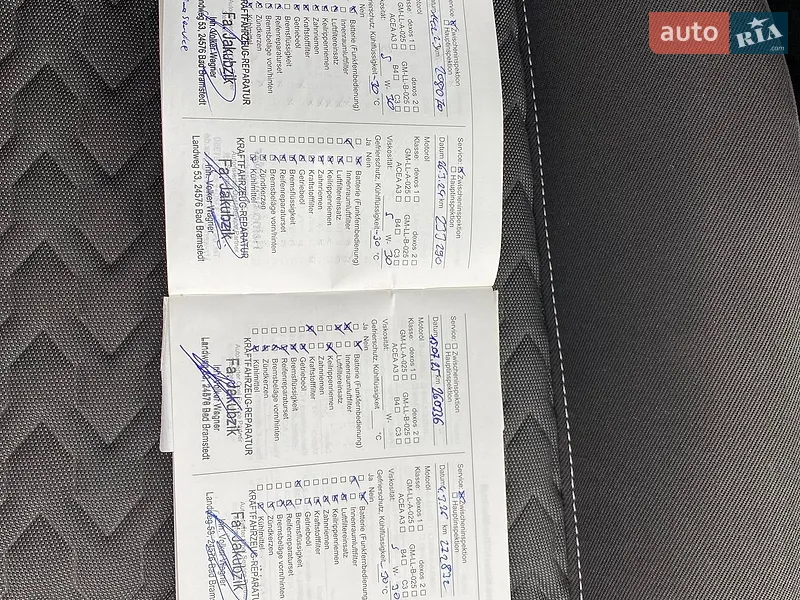 auto RIA .com
Service: ☒ Zwischeninspektion
☐ Hauptinspektion
km 208070
Klasse: dexos 1 ☐ dexos 2 ☐
GM-LL-A-025 ☐ GM-LL-B-025 ☐
ACEA A3 ☐ B4 ☐ C3 ☐
5 W- 30
Gefrierschutz, Kühlflüssigkeit -30 °C
Nein
Batterie (Funkfernbedienung)
Innenraumluftfilter
Luftfiltereinsatz
Keilrippenriemen
Zahnriemen
Kraftstofffilter
Getriebeöl
Bremsflüssigkeit
Reifenreparaturset
Bremsbeläge vorn/hinten
Zündkerzen
KRAFTFAHRZEUG-REPARATUR
Fa. Jakubzik
Inh. Volker Wagner
Landweg 53, 24576 Bad Bramstedt
Service: ☒ Zwischeninspektion
☐ Hauptinspektion
Datum km
Motoröl
Klasse: dexos 1 ☐ dexos 2 ☐
GM-LL-A-025 ☐ GM-LL-B-025 ☐
ACEA A3 ☐ B4 ☐ C3 ☐
Viskosität: 5 W- 30
Gefrierschutz, Kühlflüssigkeit -30 °C
Ja Nein
Batterie (Funkfernbedienung)
Innenraumluftfilter
Luftfiltereinsatz
Keilrippenriemen
Zahnriemen
Kraftstofffilter
Getriebeöl
Bremsflüssigkeit
Reifenreparaturset
Bremsbeläge vorn/hinten
Zündkerzen
Kühlmittel
KRAFTFAHRZEUG-REPARATUR
Fa. Jakubzik
Inh. Volker Wagner
Landweg 53, 24576 Bad Bramstedt
Service: ☐ Zwischeninspektion
☐ Hauptinspektion
Datum km 260336
Motoröl
Klasse: dexos 1 ☐ dexos 2 ☐
GM-LL-A-025 ☐ GM-LL-B-025 ☐
ACEA A3 ☐ B4 ☐ C3 ☐
Viskosität: W-
Gefrierschutz, Kühlflüssigkeit °C
Ja Nein
Batterie (Funkfernbedienung)
Innenraumluftfilter
Luftfiltereinsatz
Keilrippenriemen
Zahnriemen
Kraftstofffilter
Getriebeöl
Bremsflüssigkeit
Reifenreparaturset
Bremsbeläge vorn/hinten
Zündkerzen
Kühlmittel
KRAFTFAHRZEUG-REPARATUR
Fa. Jakubzik
Inh. Volker Wagner
Landweg 53, 24576 Bad Bramstedt
Service: ☒ Zwischeninspektion
☐ Hauptinspektion
Datum km
Motoröl
Klasse: dexos 1 ☐ dexos 2 ☐
GM-LL-A-025 ☐ GM-LL-B-025 ☐
ACEA A3 ☐ B4 ☐ C3 ☐
Viskosität: 5 W- 30
Gefrierschutz, Kühlflüssigkeit -30 °C
Ja Nein
Batterie (Funkfernbedienung)
Innenraumluftfilter
Luftfiltereinsatz
Keilrippenriemen
Zahnriemen
Kraftstofffilter
Getriebeöl
Bremsflüssigkeit
Reifenreparaturset
Bremsbeläge vorn/hinten
Zündkerzen
Kühlmittel
KRAFTFAHRZEUG-REPARA
Fa. Jakubzik
Inh. Volker Wagner
Landweg 53, 24576 Bad Bram